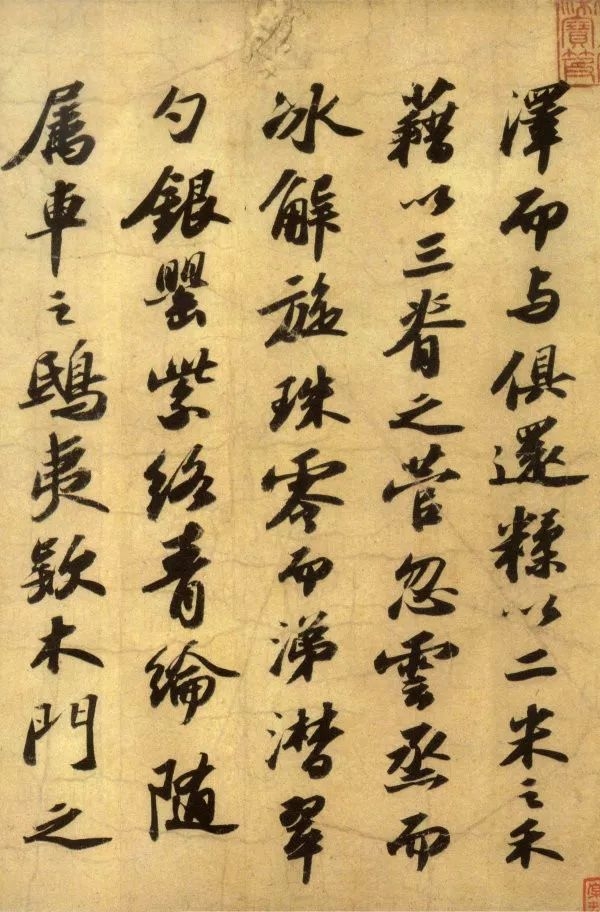 澤而与俱還糅以二米之禾
藉以三脊之菅忽雲烝而
冰解旋珠零而涕潸翠
勺銀罌紫絡青綸随
属車之鴟夷欵木門之
寶笈